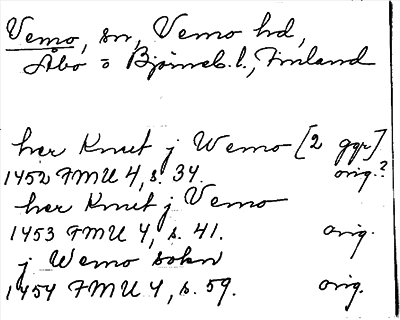 Vemo, sn, Vemo hd,
Åbo o Björneb. l., Finland
her Knut j Wemo [2 ggr]
1452 FMU 4, s. 34. orig.?
her Knut j Vemo
1453 FMU 4, s. 41. orig.
j Wemo sokn
1454 FMU 4, s. 59. orig.